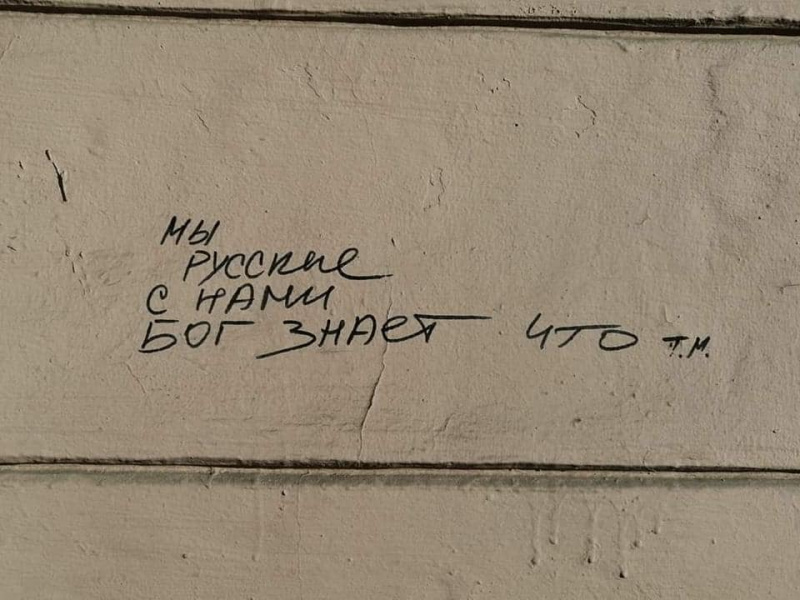 МЫ
РУССКИЕ
С НАМИ
БОГ ЗНАЕТ ЧТО Т.М.